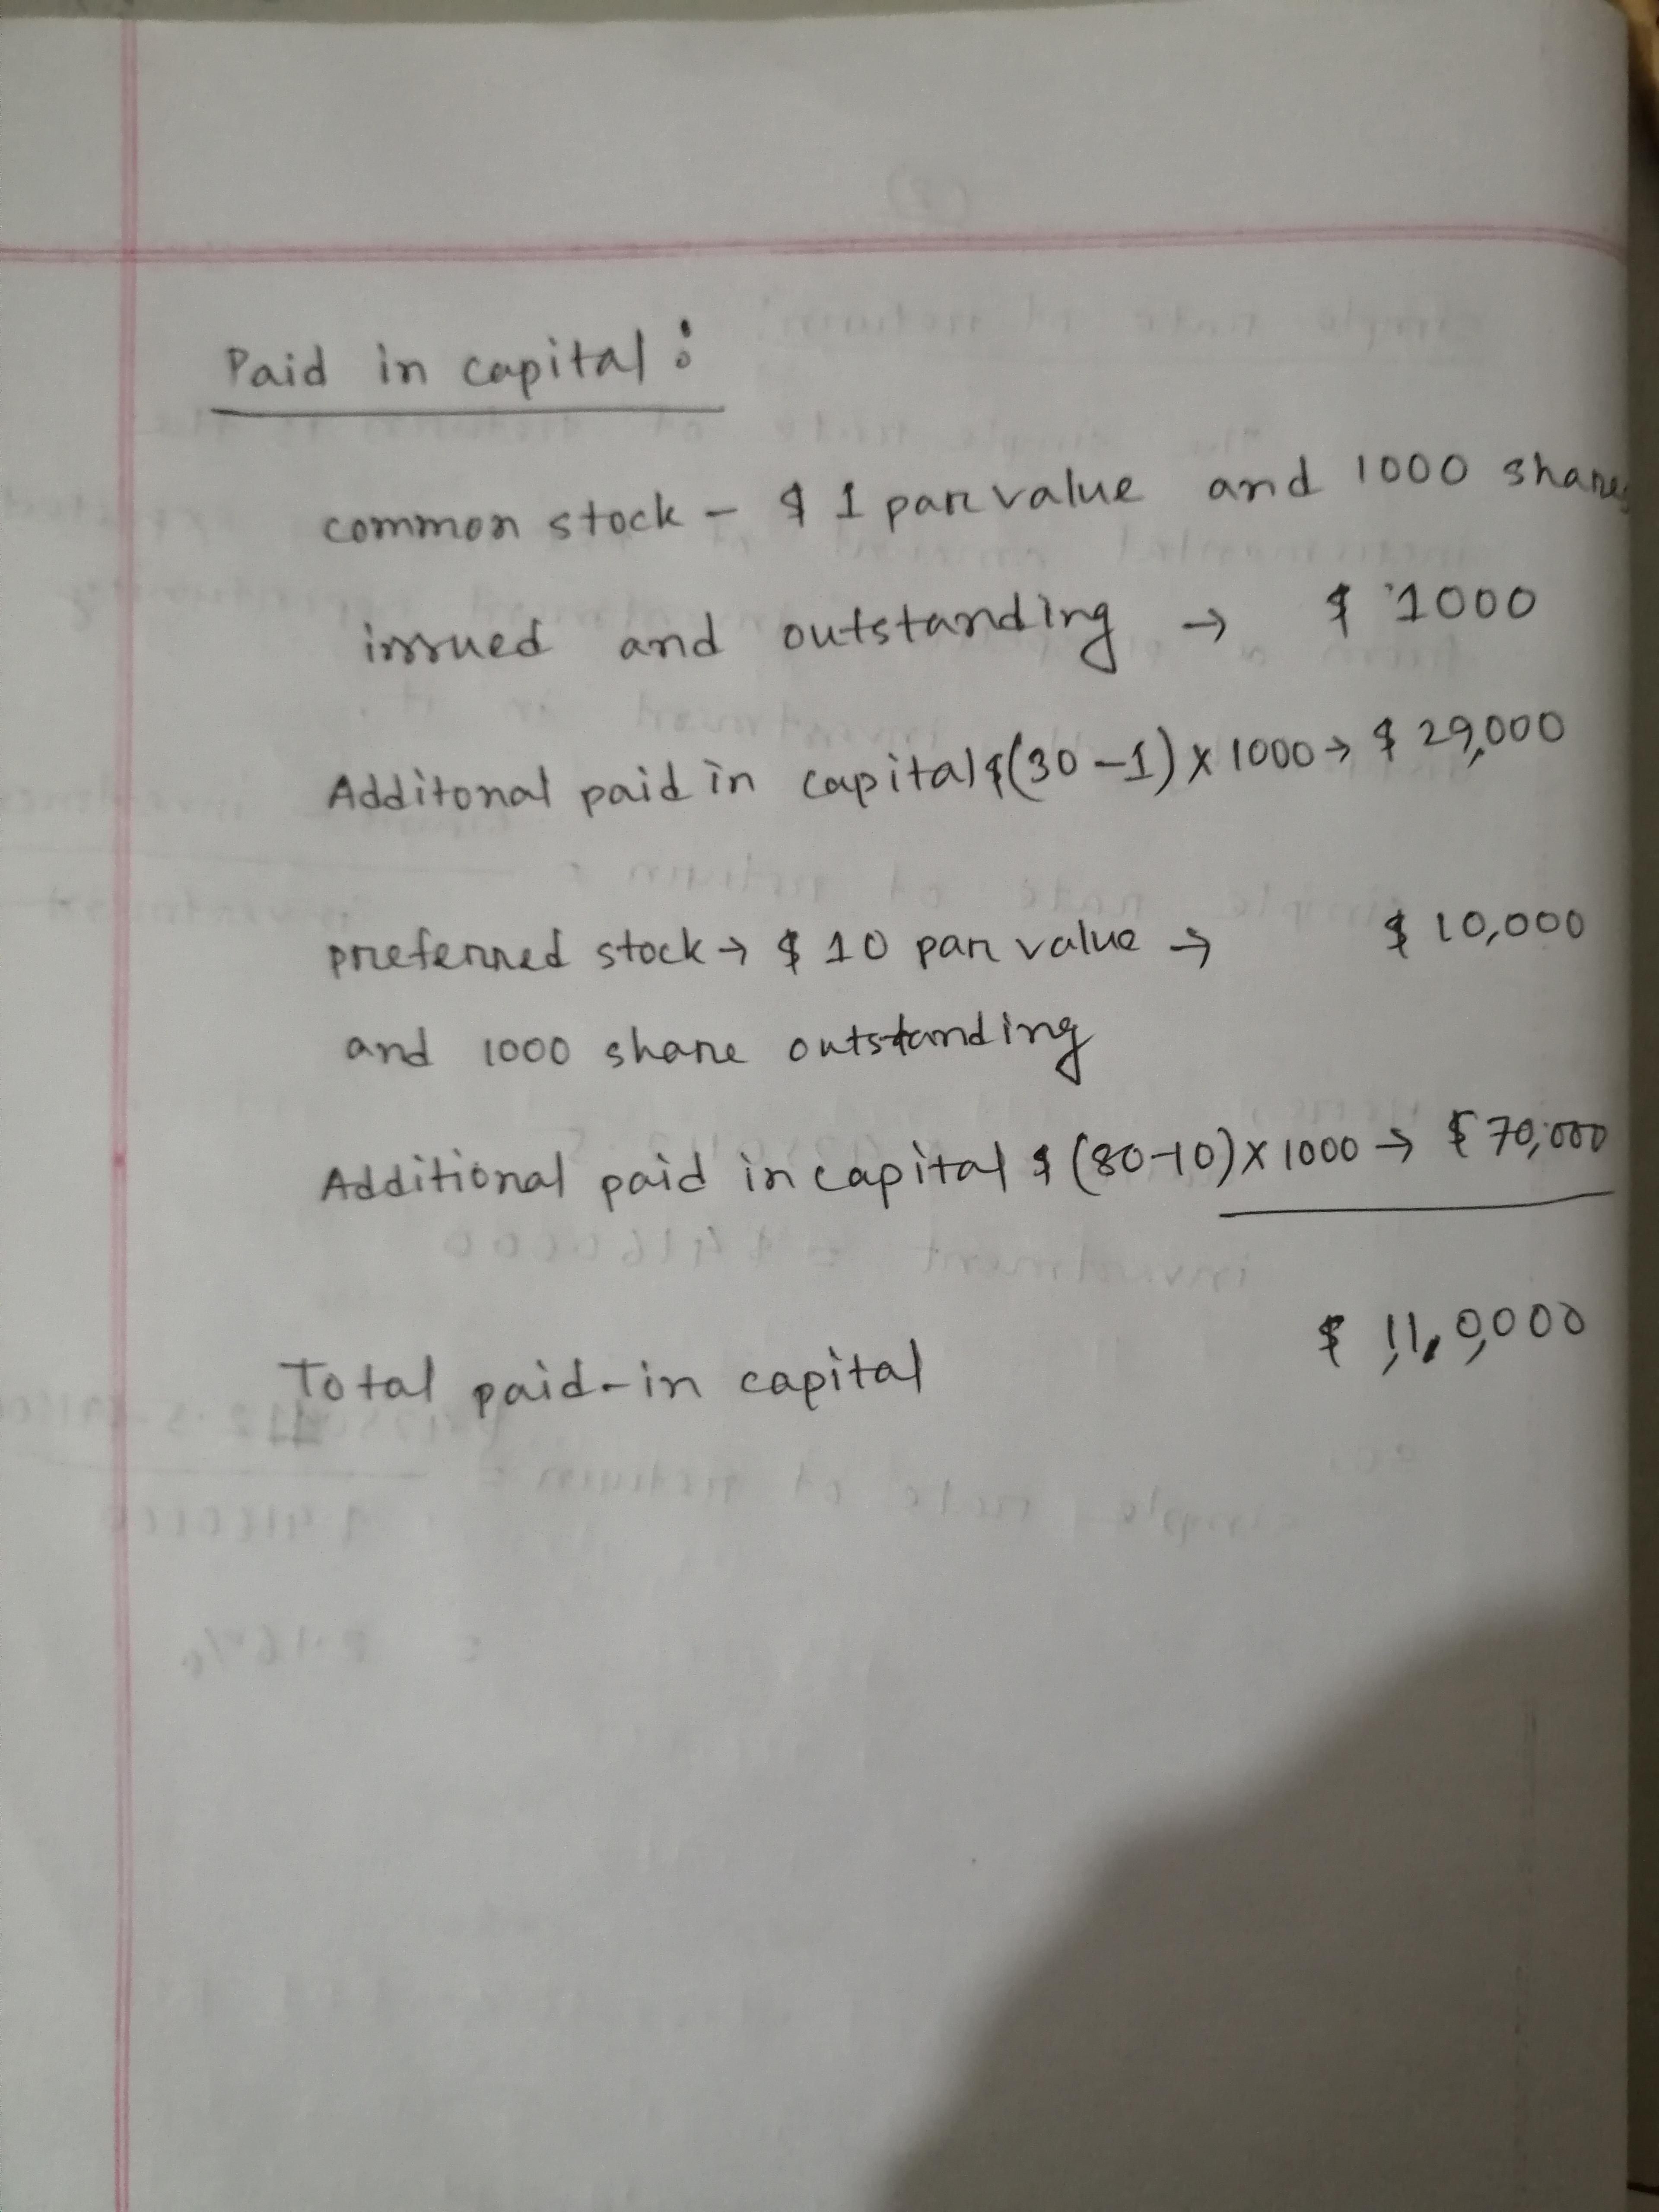 Paid in capital :
common stock - $ 1 par value and 1000 shares
issued and outstanding → $ 1000
Additonal paid in capital $(30-1) x 1000 → $ 29,000
preferred stock → $ 10 par value → $ 10,000
and 1000 share outstanding
Additional paid in capital $ (80-10) x 1000 → $ 70,000
Total paid-in capital $ 1,1,0,000